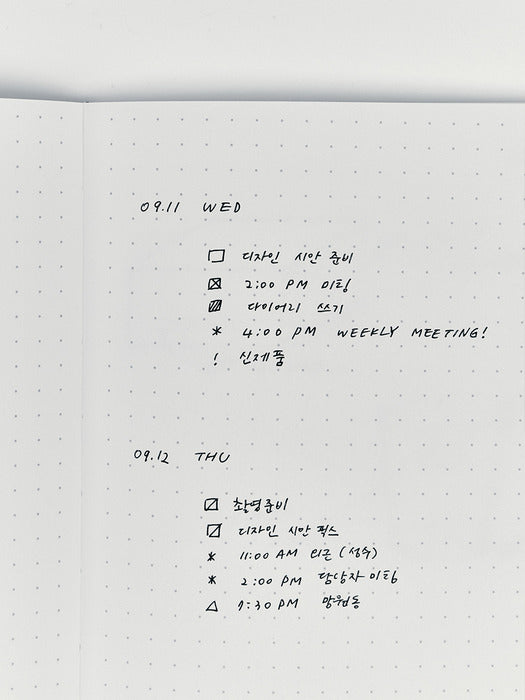 09.11 WED
디자인 시안 준비
2:00 PM 미팅
다이어리 쓰기
* 4:00 PM WEEKLY MEETING!
! 신제품
09.12 THU
촬영준비
디자인 시안 픽스
* 11:00 AM 외근 (성수)
* 2:00 PM 담당자 미팅
△ 7:30 PM 망원동